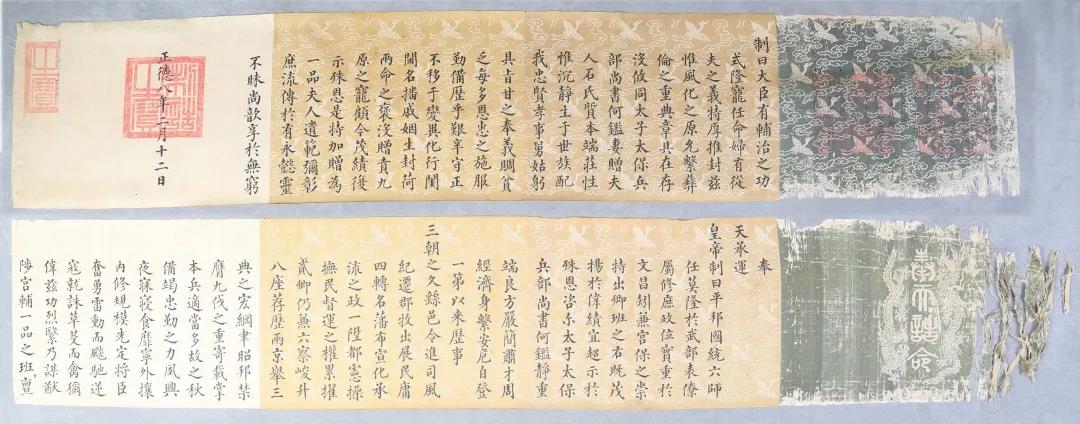 制曰大臣有輔治之功
式隆寵任命婦有從
夫之義特厚推封茲
惟風化之原允繫彝
倫之重典章具在存
沒攸同太子太保兵
部尚書何鑑妻贈夫
人石氏質本端莊性
惟沉靜生于世族配
我忠賢孝事舅姑躬
具旨甘之奉義賙貧
乏每多恩惠之施服
勤備歷乎艱辛守正
不移于變異化行閨
閫名揚戚姻生封荷
兩命之褒沒贈賁九
原之寵顧今茂績復
示殊恩是特加贈為
一品夫人遺範彌彰
庶流傳於有永懿靈
不昧尚歆享於無窮
正德八年二月十二日
制誥之寶
之寶
奉天誥命
奉
天承運
皇帝制曰平邦國統六師
任莫隆於武部表僚
屬修庶政位實重於
文昌矧兼宮保之崇
特出卿班之右既茂
揚於偉績宜超示於
殊恩咨尔太子太保
兵部尚書何鑑靜重
端良方嚴簡肅才周
經濟身繫安危自登
一第以來歷事
三朝之久綠邑令進司風
紀遷郡牧出展民庸
四轉名藩布宣化承
流之政一陞都憲操
撫民督運之權累擢
貳卿仍兼六察峻升
八座荐歷兩京舉三
典之宏綱聿昭邦禁
膺九伐之重寄載掌
本兵適當多故之秋
備竭忠勤之力夙興
夜寐寢食靡寧外攘
內修規模先定將臣
奮勇雷動而飈馳逆
寇就誅草芟而禽獮
偉茲功烈繄乃謀猷
陟宮輔一品之班亶